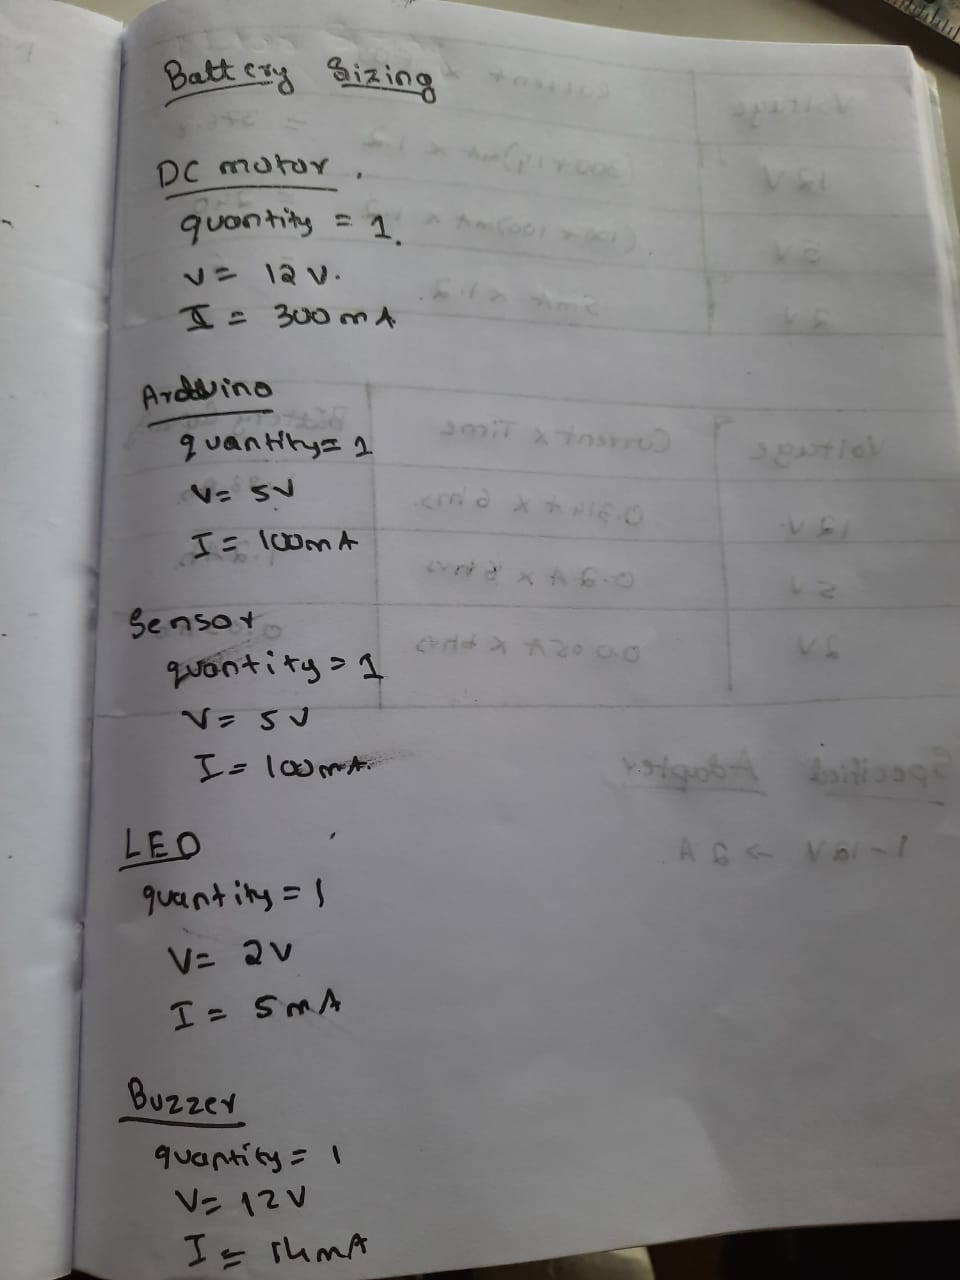 Battery Sizing
DC motor.
quantity = 1.
V = 12 V.
I = 300 mA
Arduino
quantity = 1
V = 5V
I = 100mA
Sensor
quantity = 1
V = 5V
I = 100mA.
LED
quantity = 1
V = 2V
I = 5mA
Buzzer
quantity = 1
V = 12V
I = 14mA